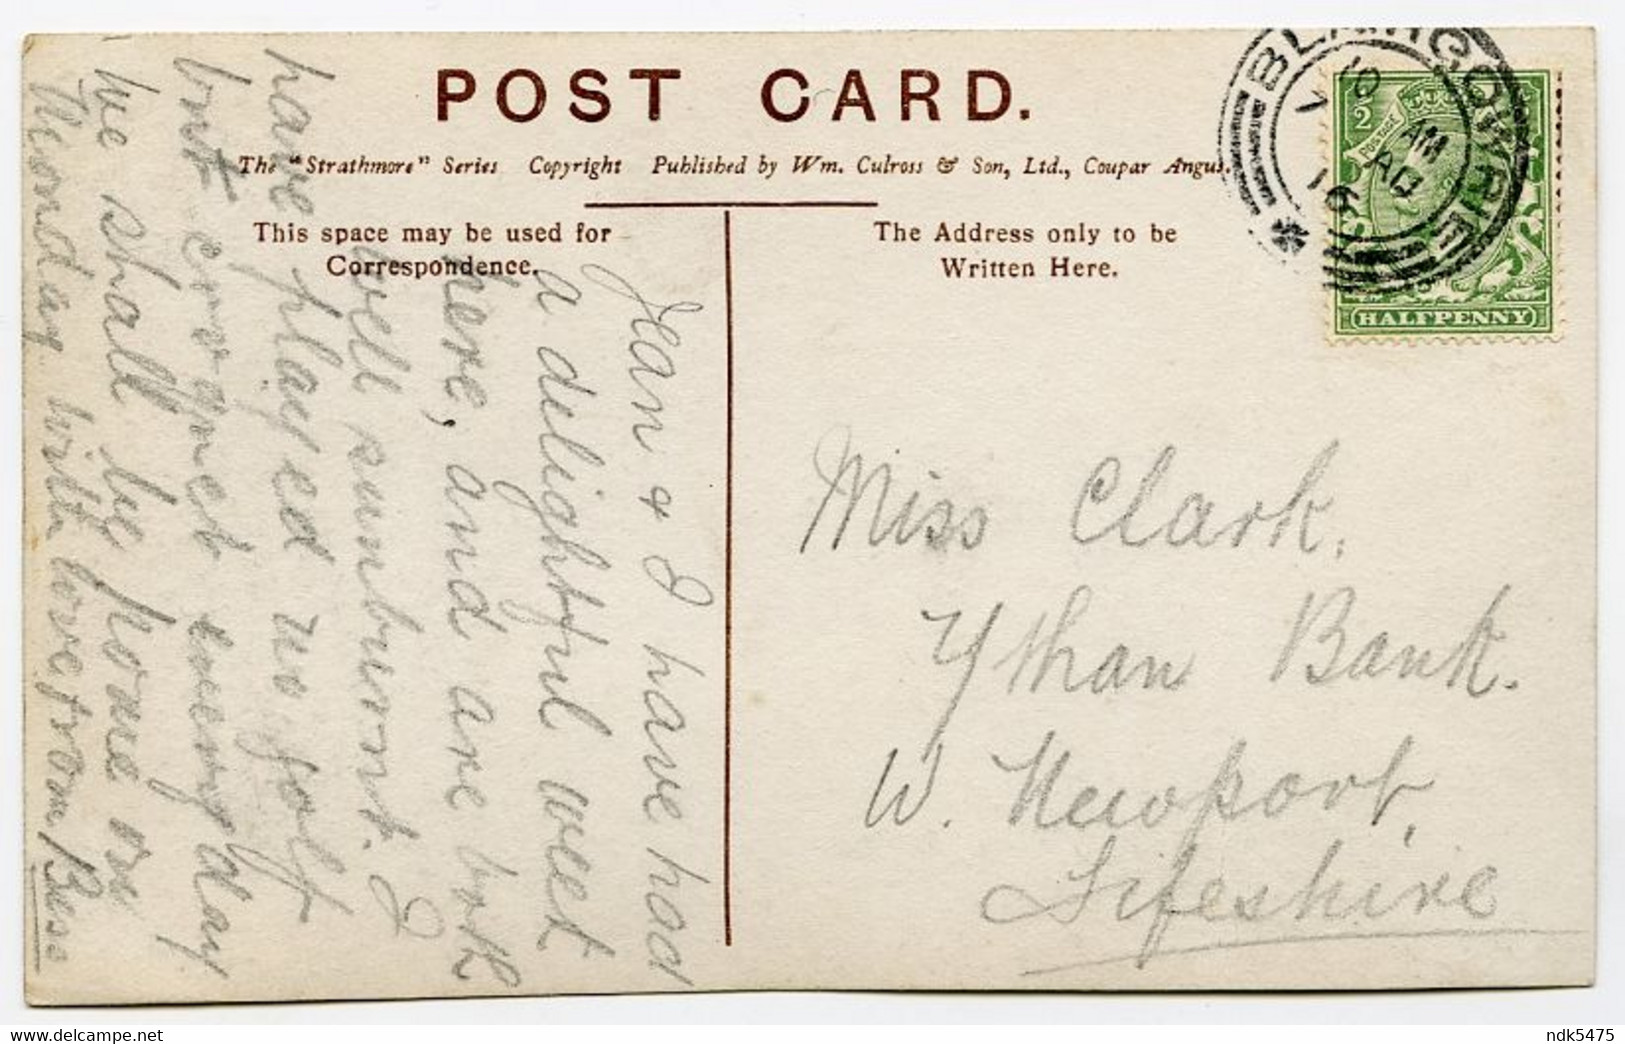 POST CARD.
The "Strathmore" Series Copyright Published by Wm. Culross & Son, Ltd., Coupar Angus.
This space may be used for
Correspondence.
The Address only to be
Written Here.
BLAIRGOWRIE
10 AM
7 AU
16
1/2
POSTAGE
HALFPENNY
Jean & I have had
a delightful week
here, and are both
well sunburnt. I
have played no golf
but croquet every day
We shall be home on
Monday. With love from Bess
Miss Clark.
Ythan Bank.
W. Newport,
Fifeshire
ndk5475